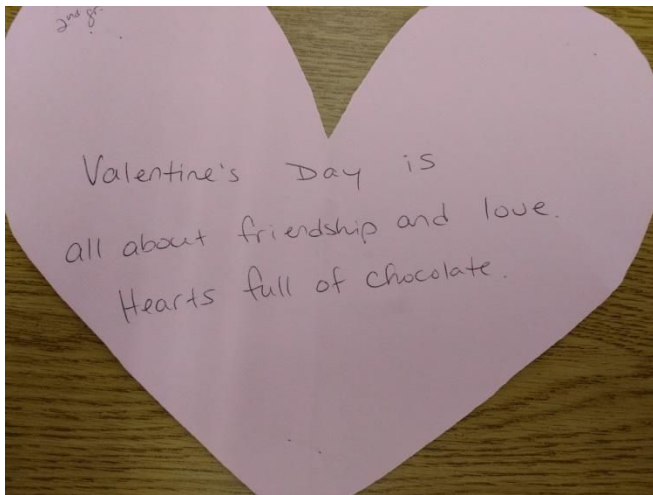 2nd gr.
Valentine's Day is
all about friendship and love.
Hearts full of chocolate.